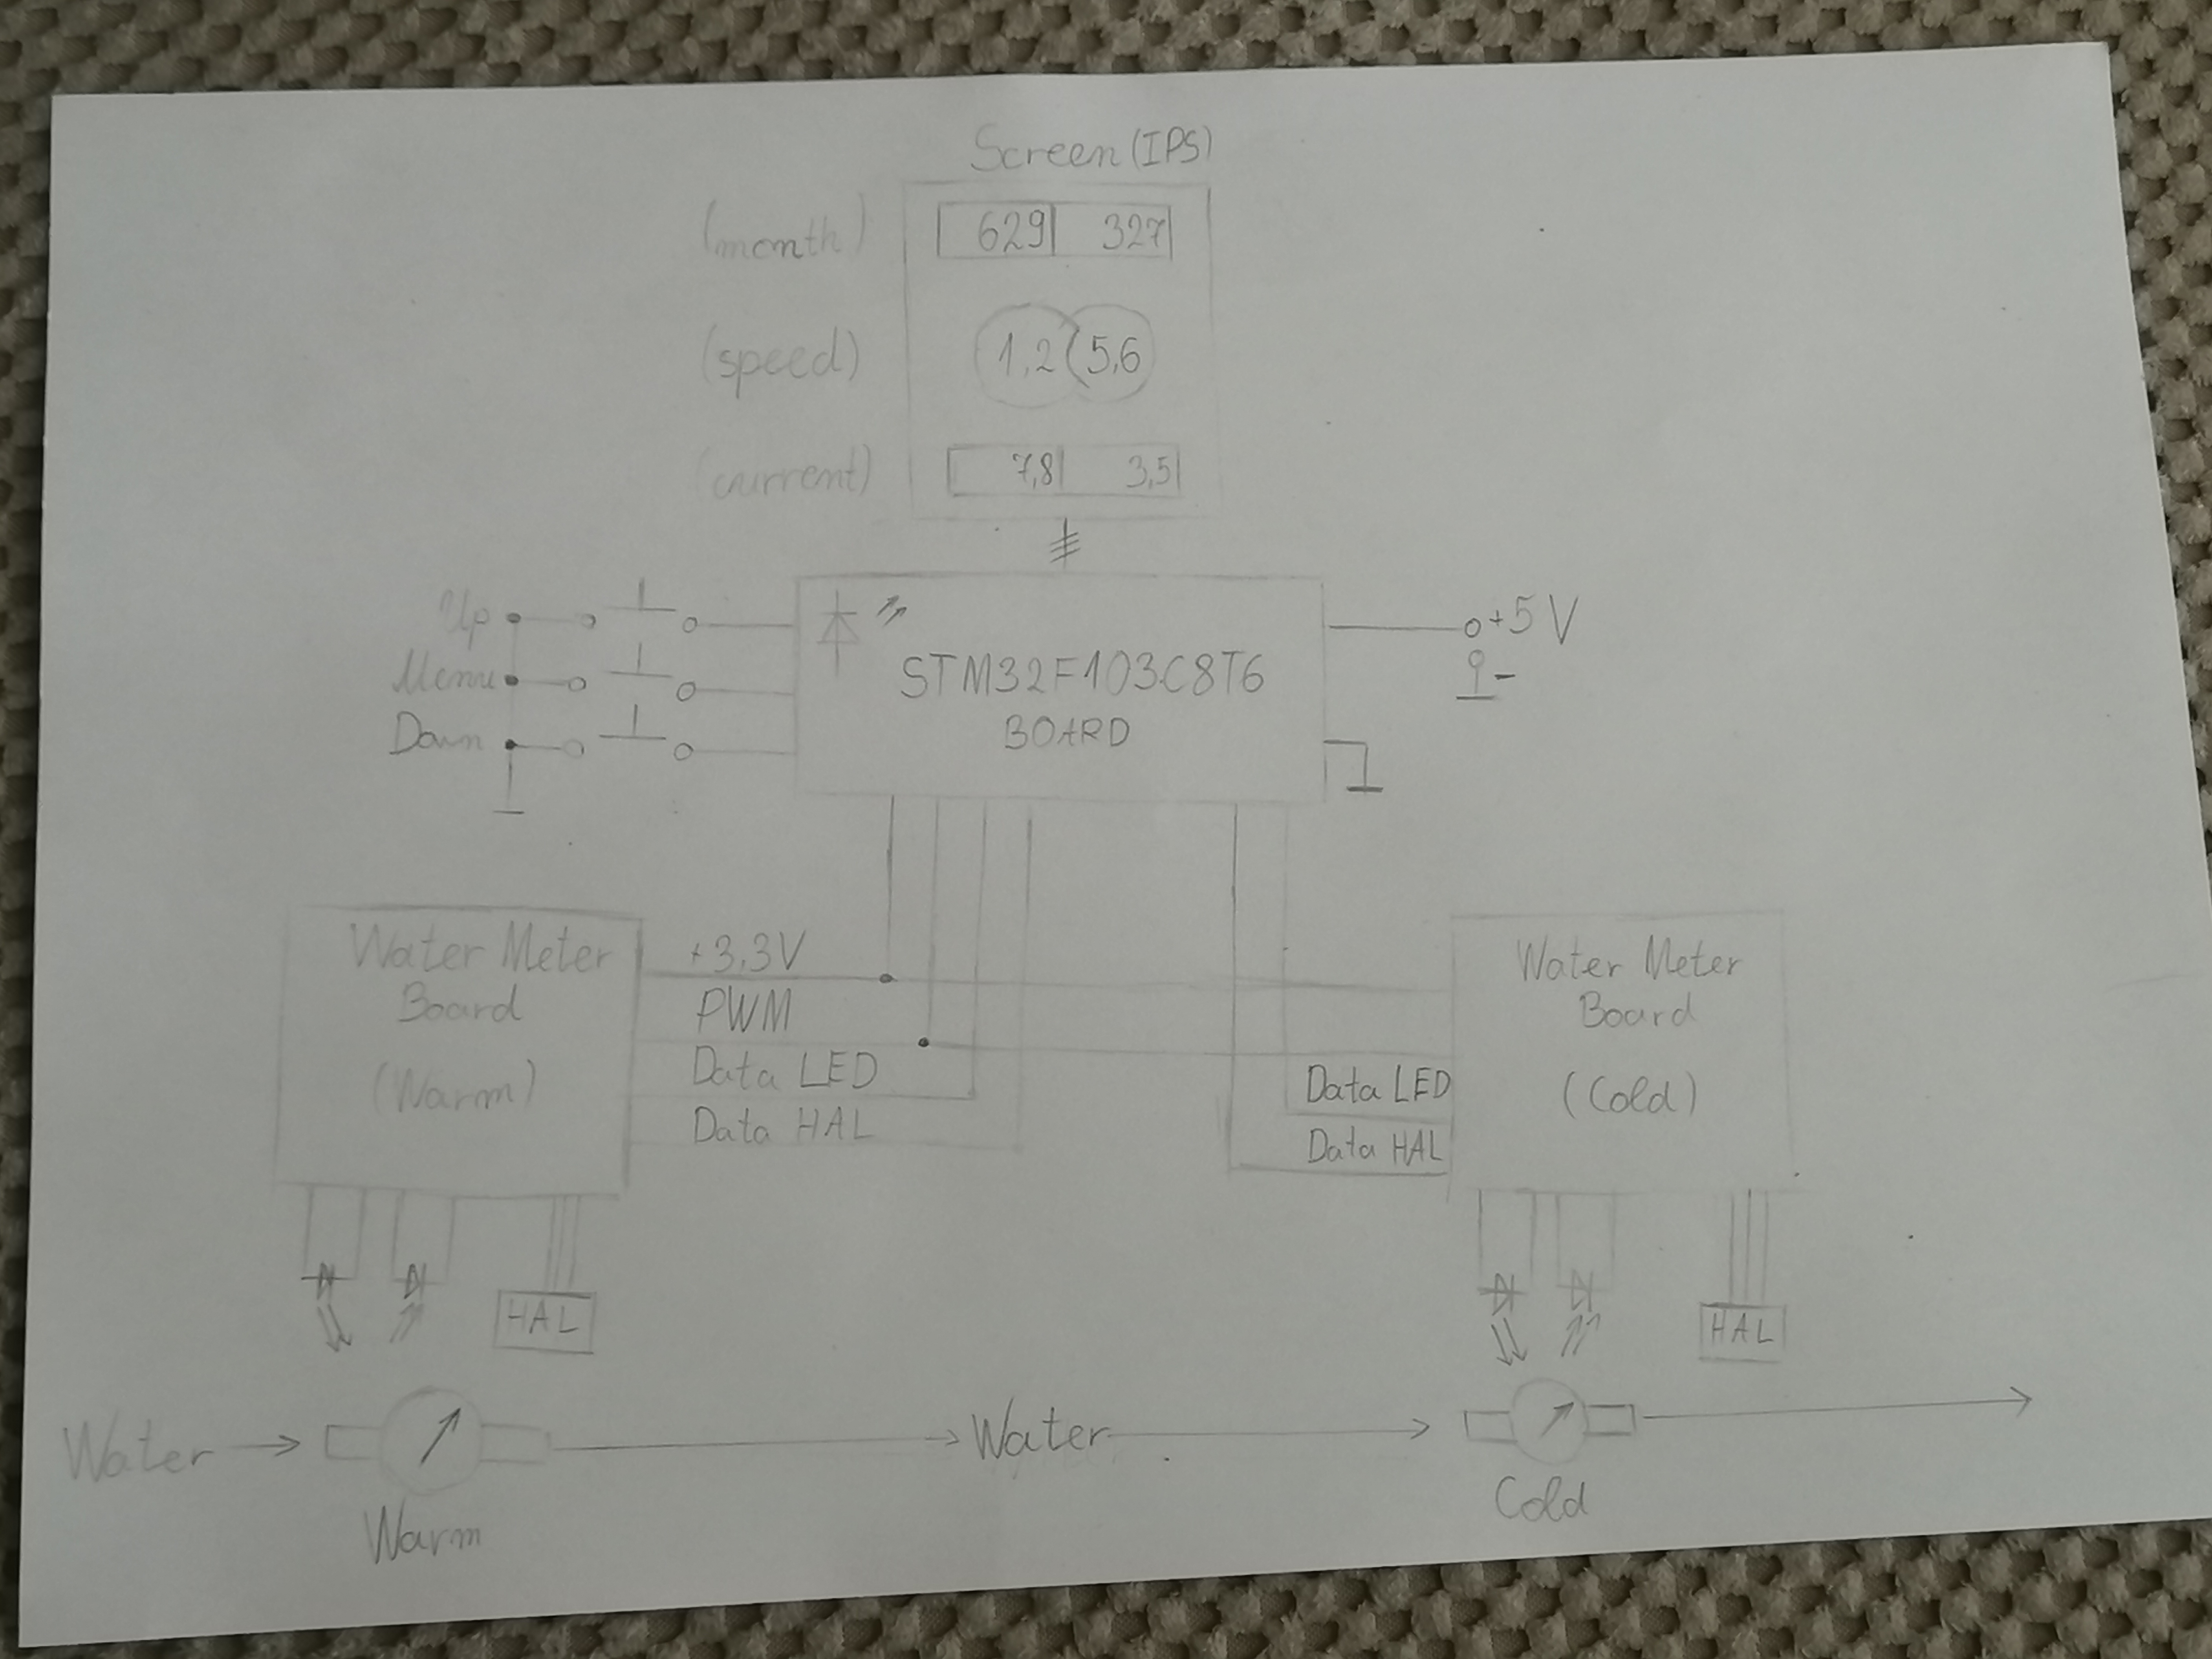 Screen (IPS)
(month) 629 327
(speed) 1,2 5,6
(current) 7,8 3,5
Up
Menu
Down
+5 V
-
STM32F103C8T6
BOARD
Water Meter
Board
(Warm)
+3.3V
PWM
Data LED
Data HAL
Data LED
Data HAL
Water Meter
Board
(Cold)
HAL
HAL
Water
Warm
Water
Cold